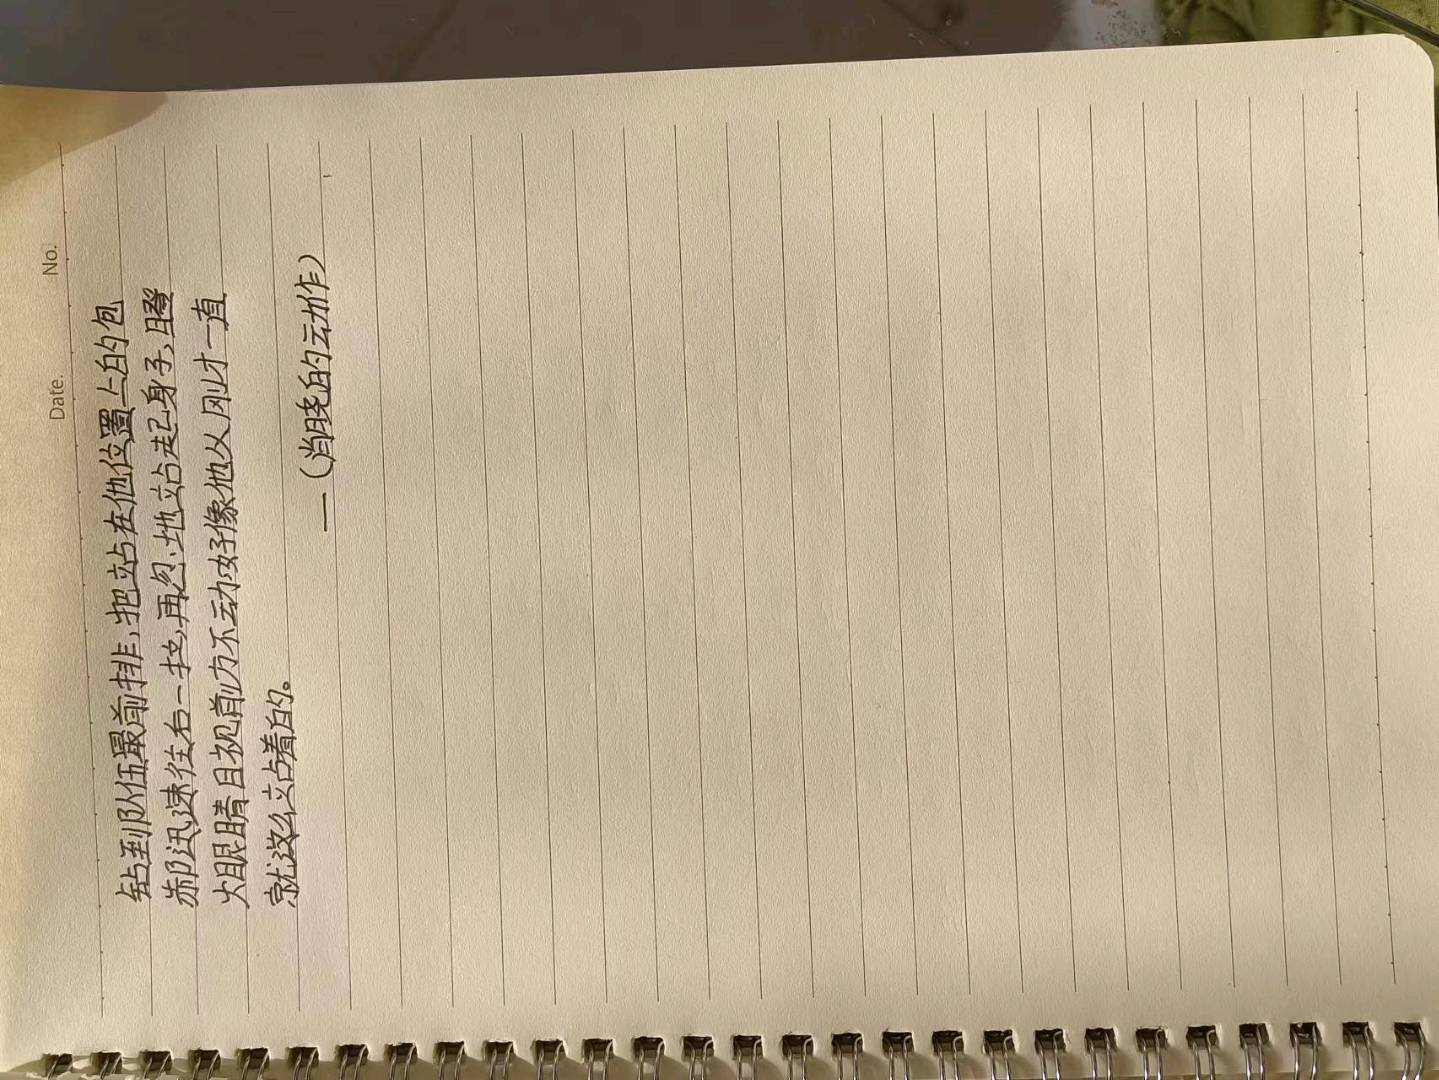 No.
Date.
钻到队伍最前排,把站在他位置上的包
郝迅速往右一拉,再忽地站起身子,瞪
大眼睛目视前方不动好像他从刚才一直
就这么站着的。
—(肖晓的动作)